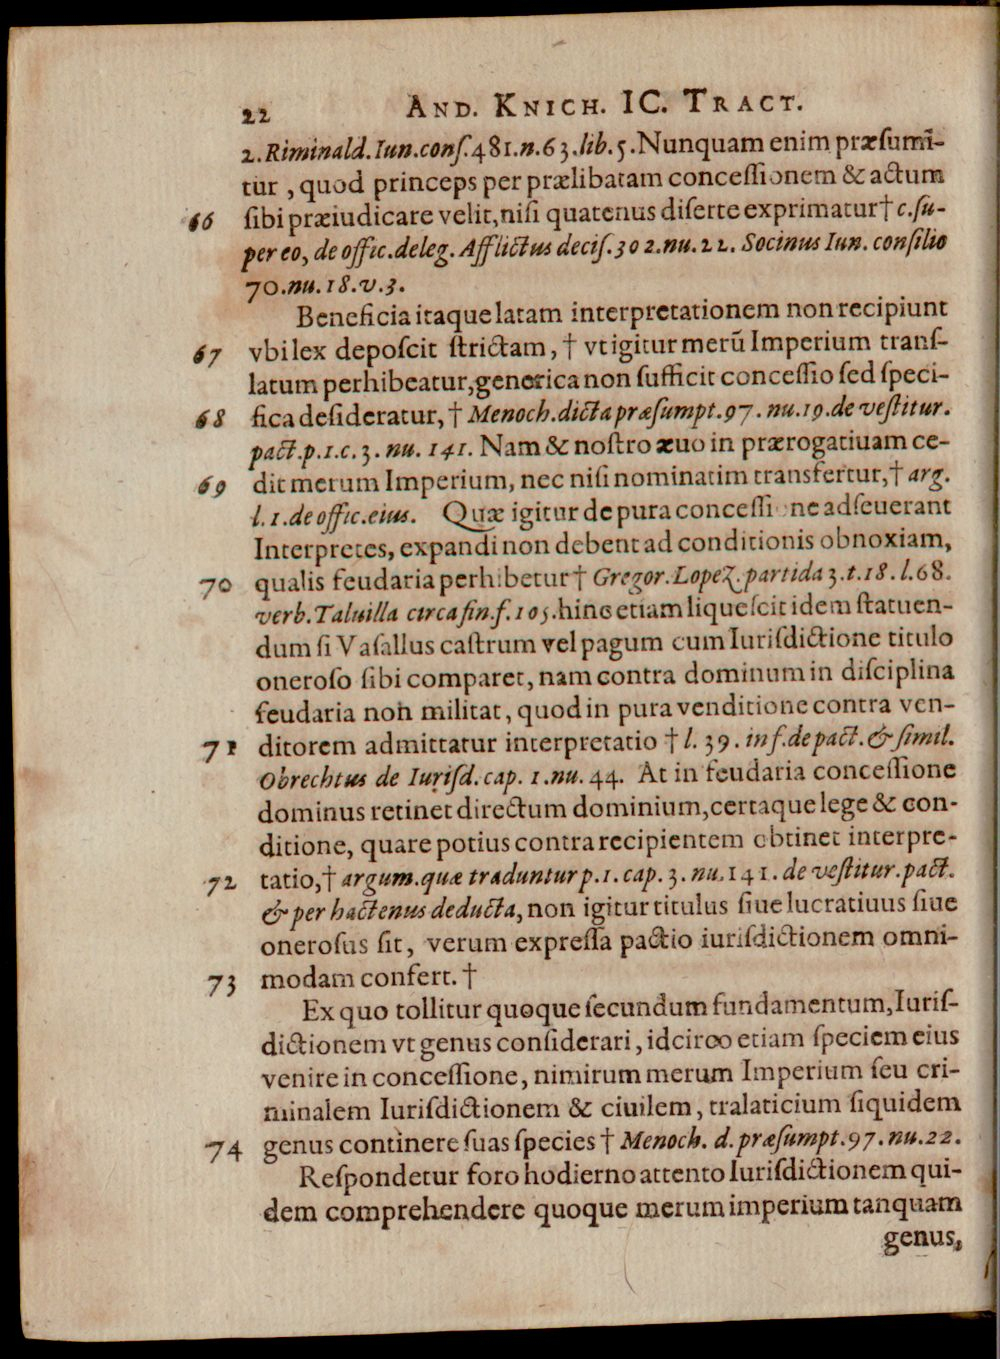 22 AND. KNICH. IC. TRACT.
2. Riminald. Iun. conſ. 481. n. 63. lib. 5. Nunquam enim præſumĩ-
tur, quod princeps per prælibatam conceſſionem & actum
66 ſibi præiudicare velit, niſi quatenus diſerte exprimatur † c. ſu-
per eo, de offic. deleg. Afflictus deciſ. 302. nu. 22. Socinus Iun. conſilio
70. nu. 18. v. 3.
Beneficia itaque latam interpretationem non recipiunt
67 vbi lex depoſcit ſtrictam, † vt igitur merũ Imperium tranſ-
latum perhibeatur, generica non ſufficit conceſſio ſed ſpeci-
68 fica deſideratur, † Menoch. dicta præſumpt. 97. nu. 19. de veſtitur.
pact. p. 1. c. 3. nu. 141. Nam & noſtro æuo in prærogatiuam ce-
69 dit merum Imperium, nec niſi nominatim transfertur, † arg.
l. 1. de offic. eius. Quæ igitur de pura conceſſione adſeuerant
Interpretes, expandi non debent ad conditionis obnoxiam,
70 qualis feudaria perhibetur † Gregor. Lopez. partida 3. t. 18. l. 68.
verb. Taluilla circa fin. f. 105. hinc etiam liqueſcit idem ſtatuen-
dum ſi Vaſallus caſtrum vel pagum cum Iuriſdictione titulo
oneroſo ſibi comparet, nam contra dominum in diſciplina
feudaria non militat, quod in pura venditione contra ven-
71 ditorem admittatur interpretatio † l. 39. inf. de pact. & ſimil.
Obrechtus de Iuriſd. cap. 1. nu. 44. At in feudaria conceſſione
dominus retinet directum dominium, certaque lege & con-
ditione, quare potius contra recipientem obtinet interpre-
72 tatio, † argum. quæ traduntur p. 1. cap. 3. nu. 141. de veſtitur. pact.
& per hactenus deducta, non igitur titulus ſiue lucratiuus ſiue
oneroſus ſit, verum expreſſa pactio iuriſdictionem omni-
73 modam confert. †
Ex quo tollitur quoque ſecundum fundamentum, Iuriſ-
dictionem vt genus conſiderari, idcirco etiam ſpeciem eius
venire in conceſſione, nimirum merum Imperium ſeu cri-
minalem Iuriſdictionem & ciuilem, tralaticium ſiquidem
74 genus continere ſuas ſpecies † Menoch. d. præſumpt. 97. nu. 22.
Reſpondetur foro hodierno attento Iuriſdictionem qui-
dem comprehendere quoque merum imperium tanquam
genus,